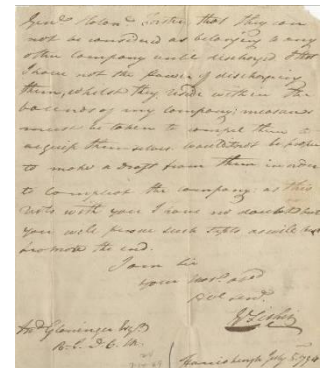 that they can
not be considered as belonging to any
other Company until discharged & that
I have not the power of discharging
them, whilst they reside within the
bounds of my company; measures
must be taken to compel them to
equip themselves would it not be proper
to make a draft from them in order
to compleat the company: as this
rests with you I have no doubt but
you will pursue such steps as will best
promote the end.
I am Sir
your most obd
Gloninger Esqr
Harrisburgh July 1794